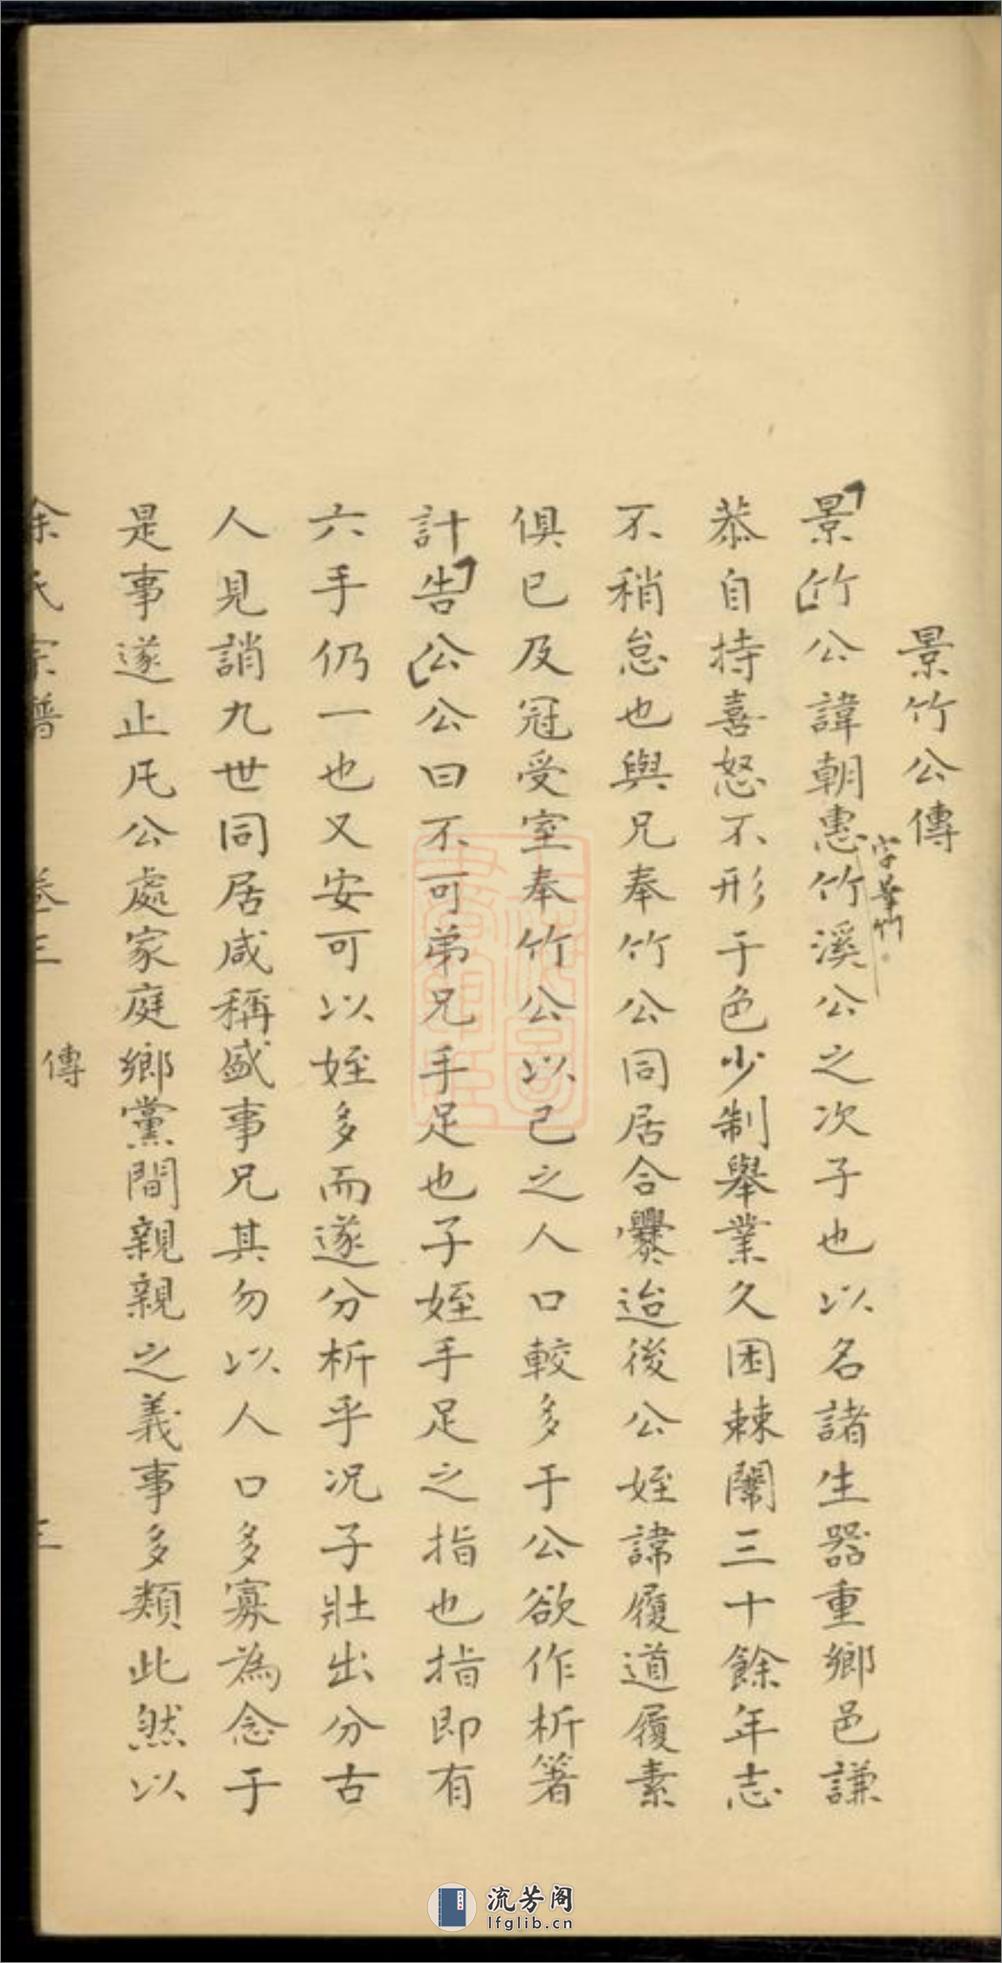 景竹公傳
景竹公諱朝惠竹溪公之次子也以名諸生器重鄉邑謙
字華竹
恭自持喜怒不形于色少制舉業久困棘闈三十餘年志
不稍怠也與兄奉竹公同居合爨迨後公姪諱履道履素
俱已及冠受室奉竹公以己之人口較多于公欲作析箸
計告公公曰不可弟兄手足也子姪手足之指也指即有
六手仍一也又安可以姪多而遂分析乎况子壯出分古
人見誚九世同居咸稱盛事兄其勿以人口多寡為念于
是事遂止凡公處家庭鄉黨間親親之義事多類此然以
余氏宗譜 卷三 傳 三
流芳阁
lfglib.cn